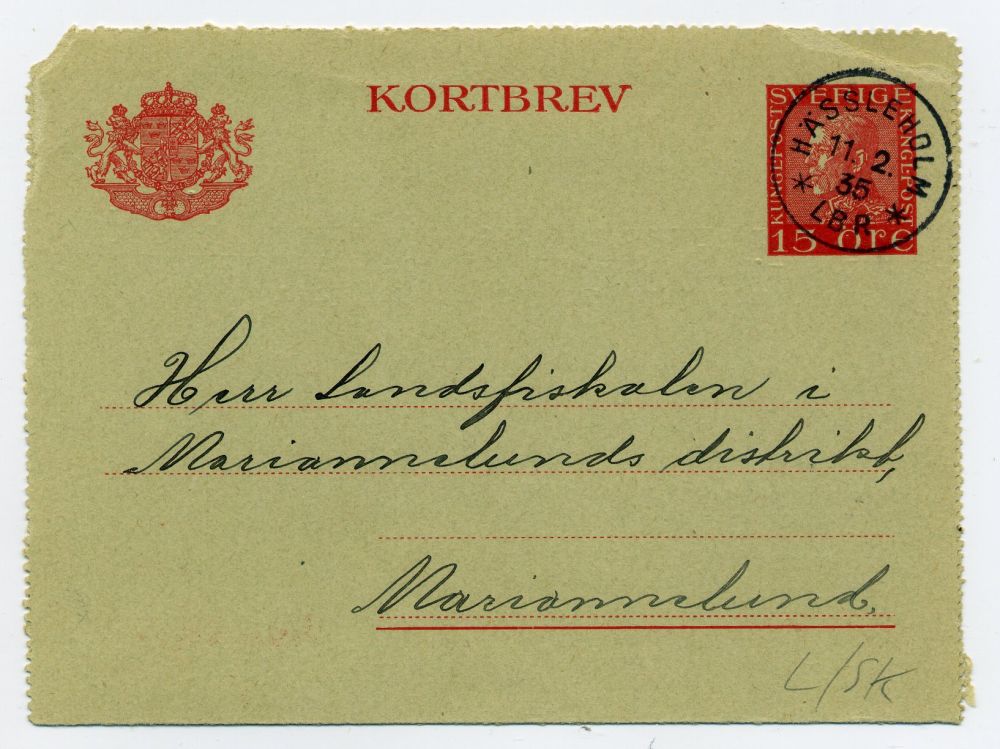 KORTBREV
SVERIGE
KUNGL·POST
KUNGL·POST
15 ÖRE
HÄSSLEHOLM
11. 2.
35
LBR
Herr Landsfiskalen i
Mariannelunds distrikt,
Mariannelund.
L/SK